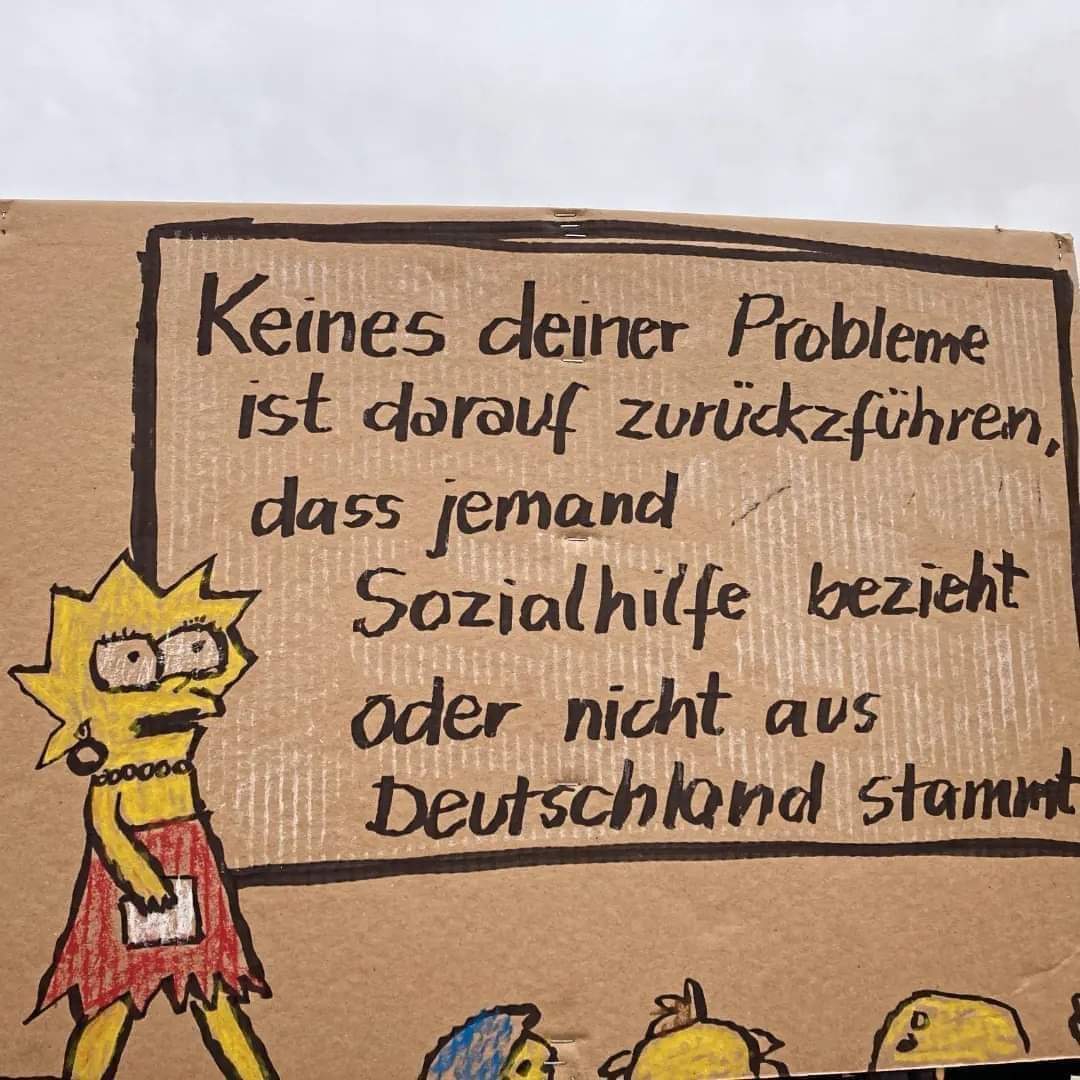 Keines deiner Probleme
ist darauf zurückzführen,
dass jemand
Sozialhilfe bezieht
oder nicht aus
Deutschland stammt